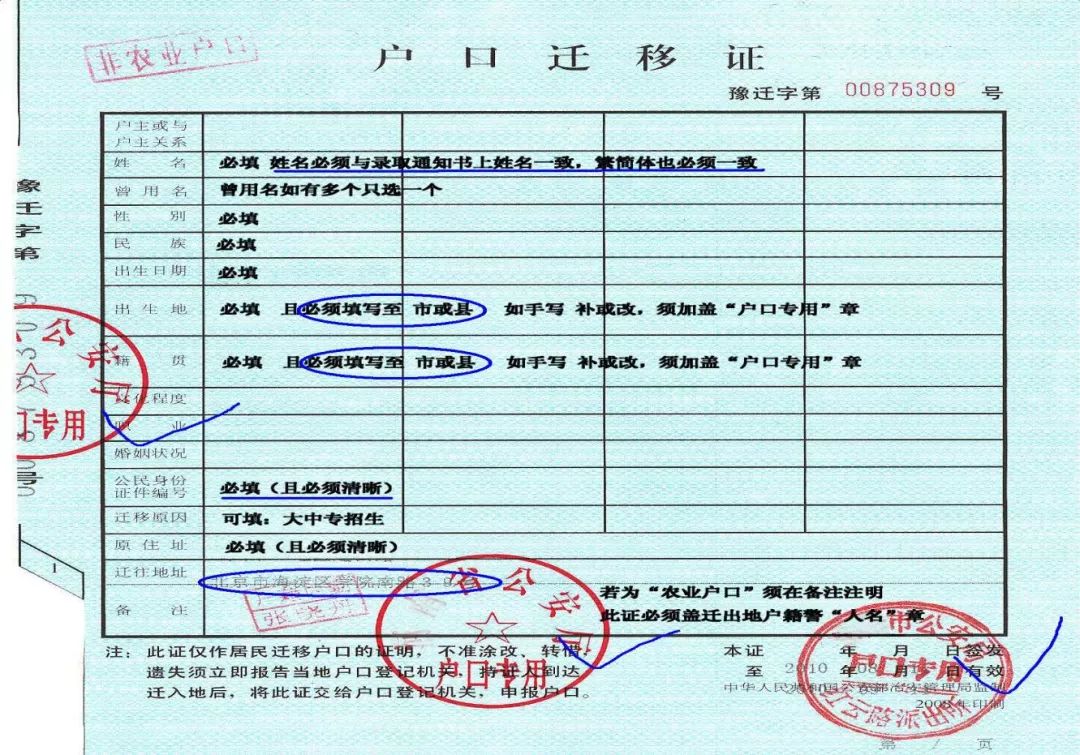 非农业户口
户口迁移证
豫迁字第 00875309 号
户主或与
户主关系
姓名 必填 姓名必须与录取通知书上姓名一致，繁简体也必须一致
曾用名 曾用名如有多个只选一个
性别 必填
民族 必填
出生日期 必填
出生地 必填 且必须填写至 市或县 如手写 补或改，须加盖“户口专用”章
籍贯 必填 且必须填写至 市或县 如手写 补或改，须加盖“户口专用”章
文化程度
职业
婚姻状况
公民身份
证件编号 必填（且必须清晰）
迁移原因 可填：大中专招生
原住址 必填（且必须清晰）
迁往地址 北京市海淀区学院南路39
备注 若为“农业户口”须在备注注明
此证必须盖迁出地户籍警“人名”章
注：此证仅作居民迁移户口的证明，不准涂改、转借，
遗失须立即报告当地户口登记机关，持证人到达
迁入地后，将此证交给户口登记机关，申报户口。
本证 年 月 日签发
至 2010 年 08 月 日有效
中华人民共和国公安部治安管理局监制
2008年印制
第 页
豫迁字第
号
公安厅
户口专用
1
省公安厅
户口专用
市公安局
户口专用
红云路派出所